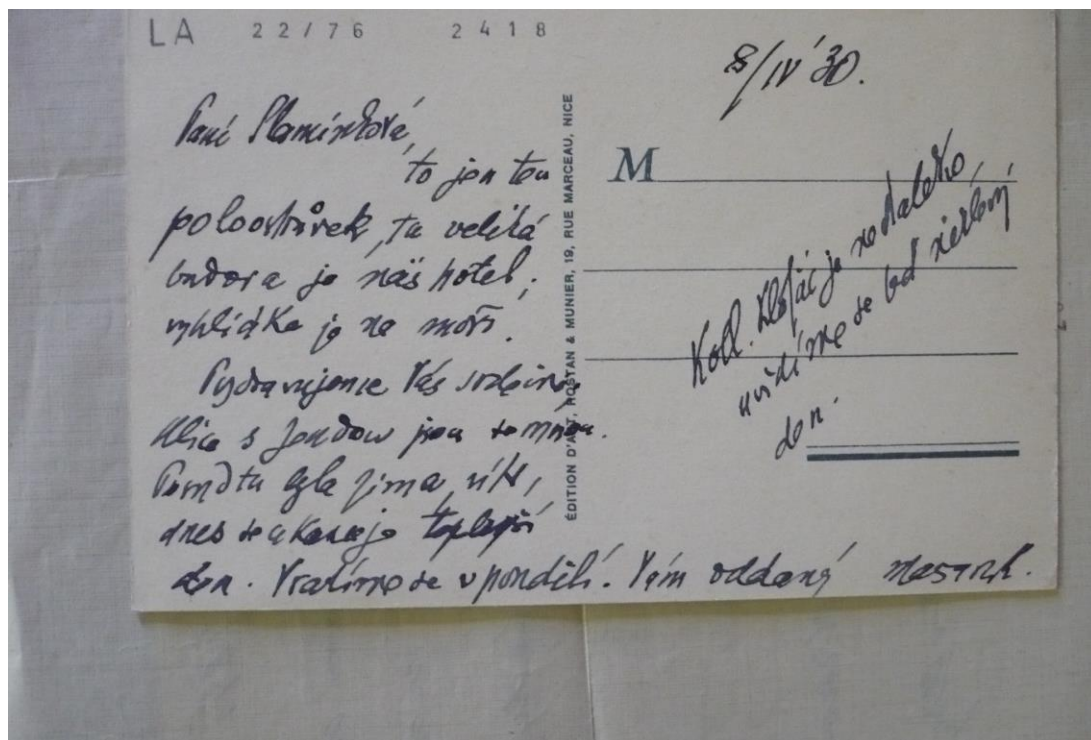 LA 22/76 2418
8/IV '30.
Paní Plamínková,
to jen ten
poloostrůvek, ta veliká
budova je náš hotel;
vyhlídka je na moře.
Pozdravujeme Vás srdečně
Alice s Jendou jsou se mnou.
tu byla zima, vítr,
dnes se ukazuje teplejší
den. Vracíme se v pondělí. Vám oddaný Masaryk.
ÉDITION D'ART, ROSTAN & MUNIER, 19, RUE MARCEAU, NICE
M
Koll. Klofáč je nedaleko
uvidíme se některý
den.